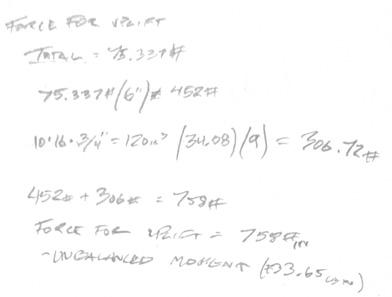 FORCE FOR UPLIFT
TOTAL = 75.337#
75.337#/(6") = 452#
10·16·3/4" = 120in³ (34.08)(9) = 306.72#
452# + 306# = 758#
FORCE FOR UPLIFT = 758#
-UNBALANCED MOMENT